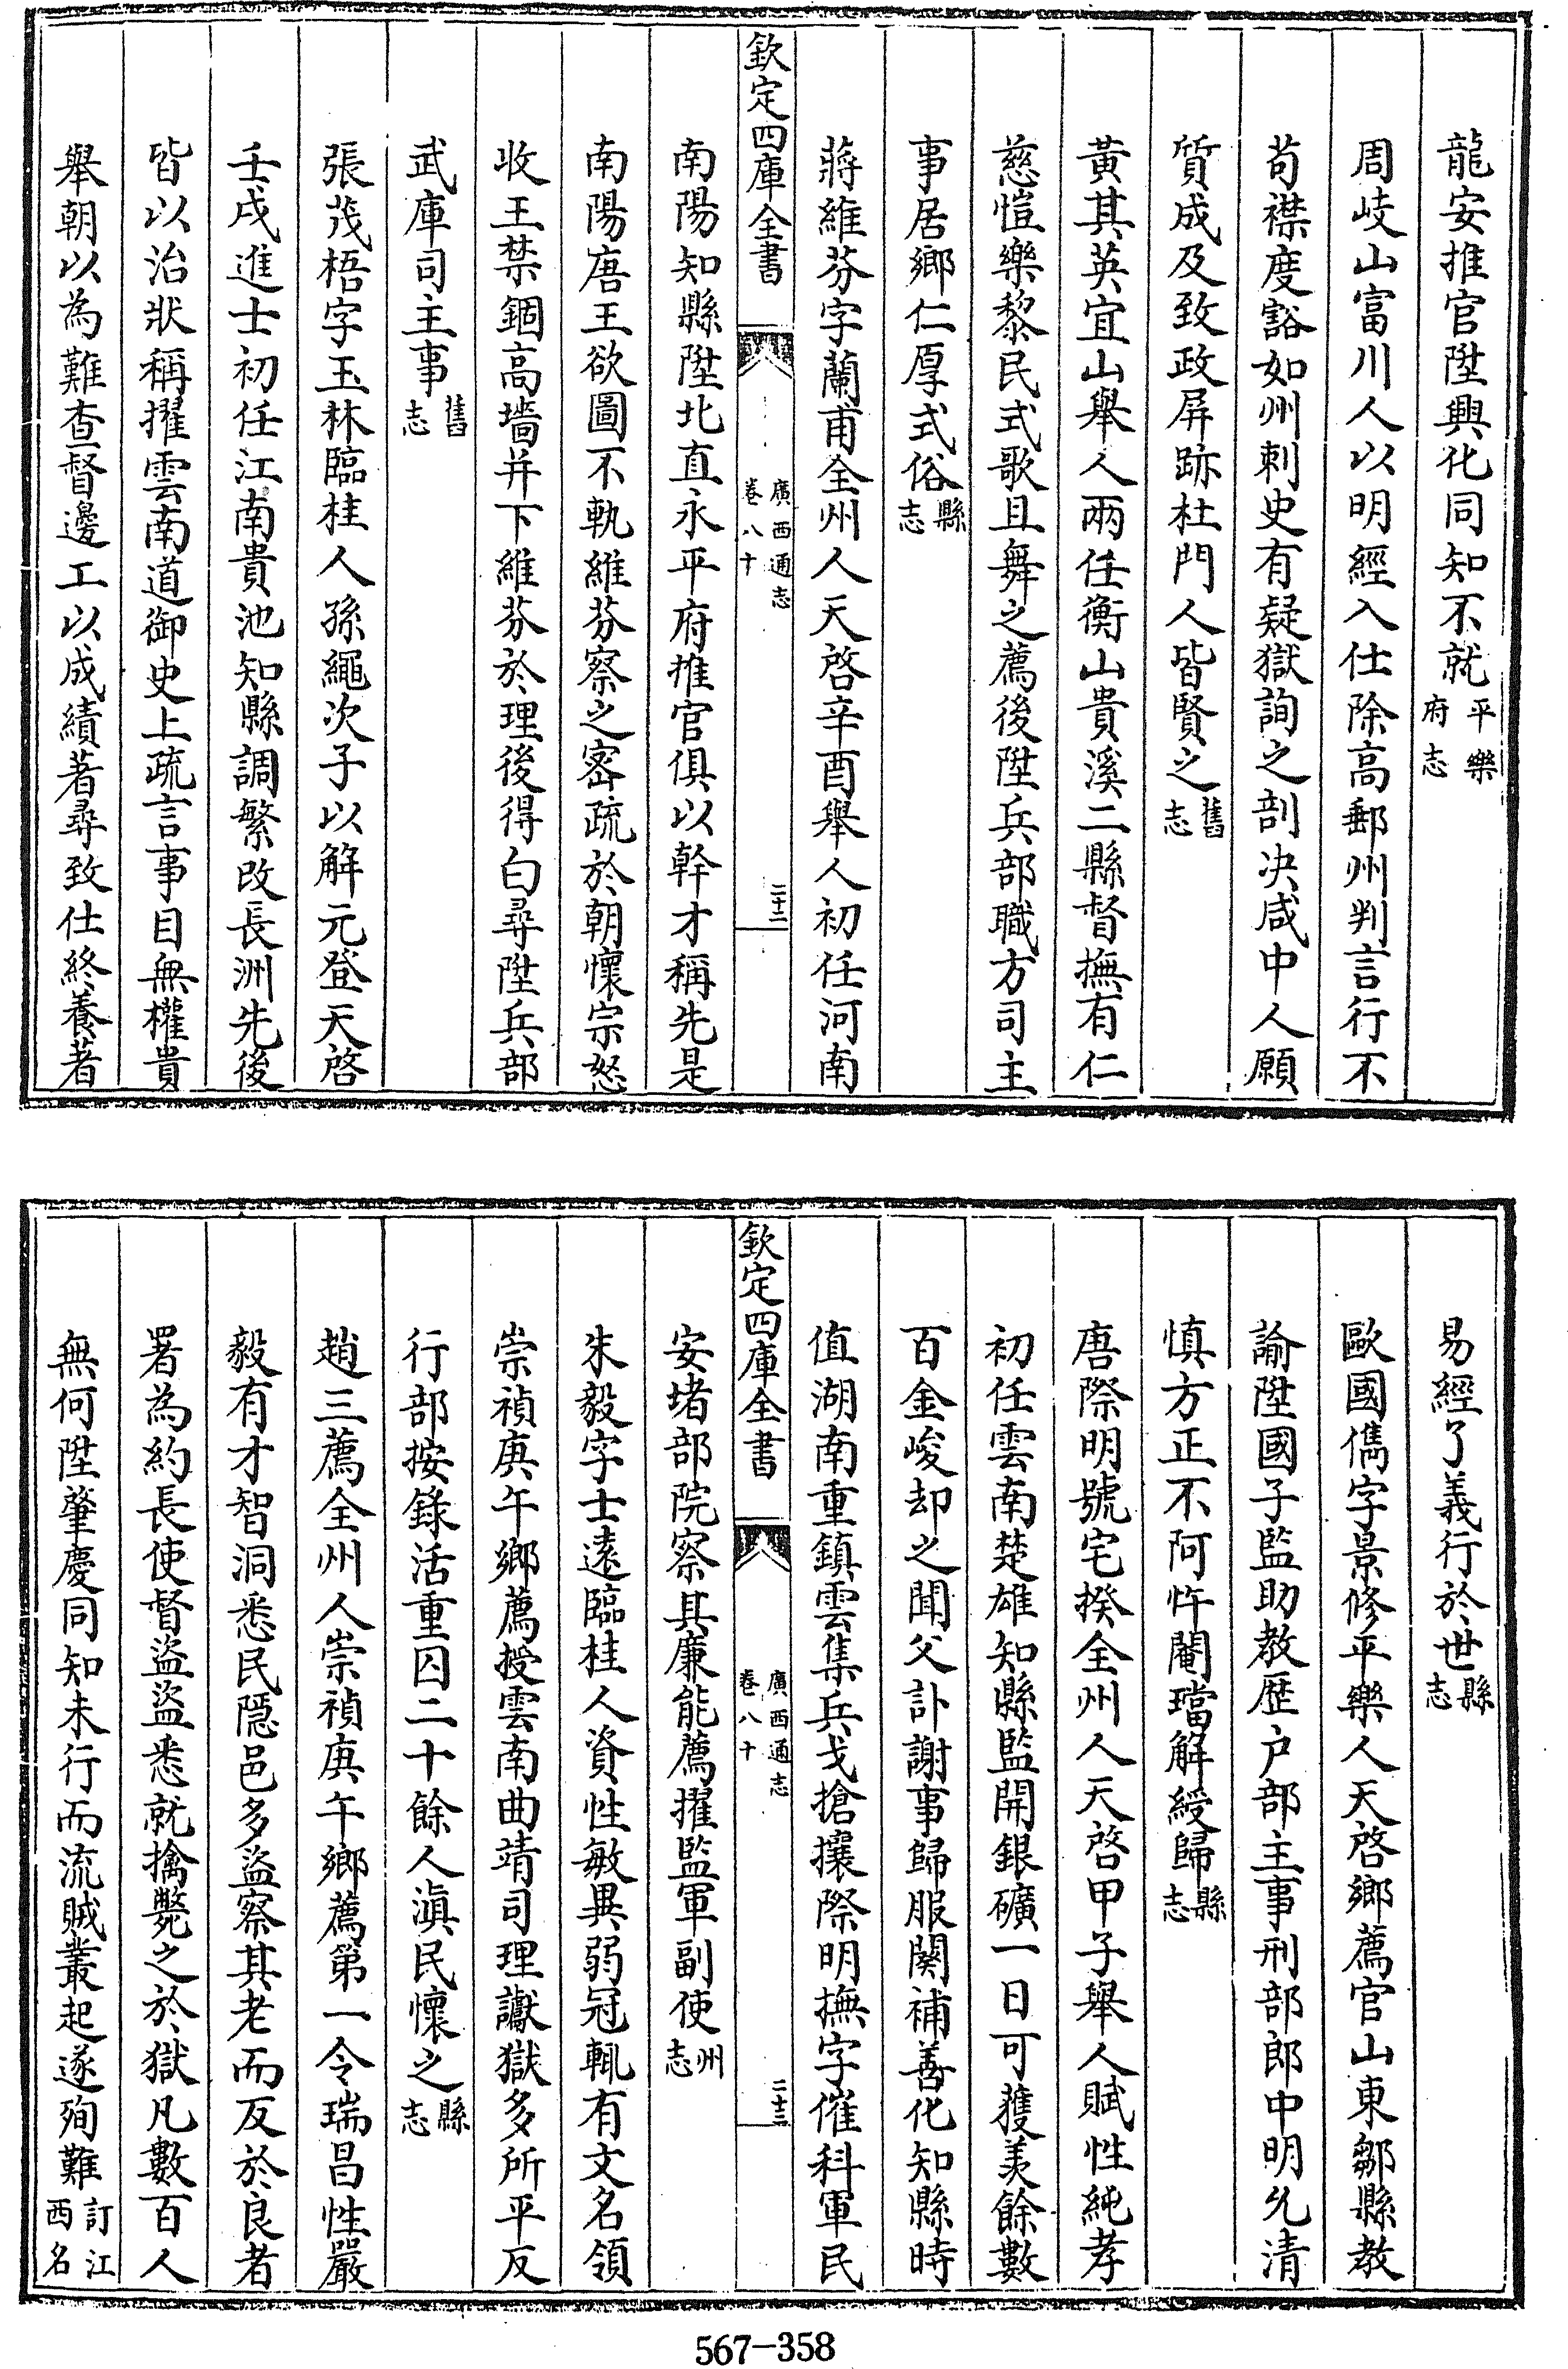 龍安推官陞興化同知不就平樂府志
周岐山富川人以明經入仕除高郵州判言行不
苟襟度豁如州刺史有疑獄詢之剖决咸中人願
質成及致政屏跡杜門人皆賢之舊志
黃其英宜山舉人兩任衡山貴溪二縣督撫有仁
慈愷樂黎民式歌且舞之薦後陞兵部職方司主
事居鄉仁厚式俗縣志
蔣維芬字蘭甫全州人天啓辛酉舉人初任河南
欽定四庫全書 廣西通志 卷八十 二十二
南陽知縣陞北直永平府推官俱以幹才稱先是
南陽唐王欲圖不軌維芬察之密疏於朝懷宗怒
收王禁錮高墻并下維芬於理後得白尋陞兵部
武庫司主事舊志
張茂梧字玉林臨桂人孫繩次子以解元登天啓
壬戌進士初任江南貴池知縣調繁改長洲先後
皆以治狀稱擢雲南道御史上疏言事目無權貴
舉朝以為難查督邊工以成績著尋致仕終養著
易經了義行於世縣志
歐國儁字景修平樂人天啓鄉薦官山東鄒縣教
諭陞國子監助教歷户部主事刑部郎中明允清
慎方正不阿忤閹璫解綬歸縣志
唐際明號宅揆全州人天啓甲子舉人賦性純孝
初任雲南楚雄知縣監開銀礦一日可獲羨餘數
百金峻却之聞父訃謝事歸服闋補善化知縣時
值湖南重鎮雲集兵戈搶攘際明撫字催科軍民
欽定四庫全書 廣西通志 卷八十 二十三
安堵部院察其廉能薦擢監軍副使州志
朱毅字士遠臨桂人資性敏異弱冠輒有文名領
崇禎庚午鄉薦授雲南曲靖司理讞獄多所平反
行部按錄活重囚二十餘人滇民懷之縣志
趙三薦全州人崇禎庚午鄉薦第一令瑞昌性嚴
毅有才智洞悉民隱邑多盜察其老而反於良者
署為約長使督盜盜悉就擒斃之於獄凡數百人
無何陞肇慶同知未行而流賊叢起遂殉難訂江西名
567-358